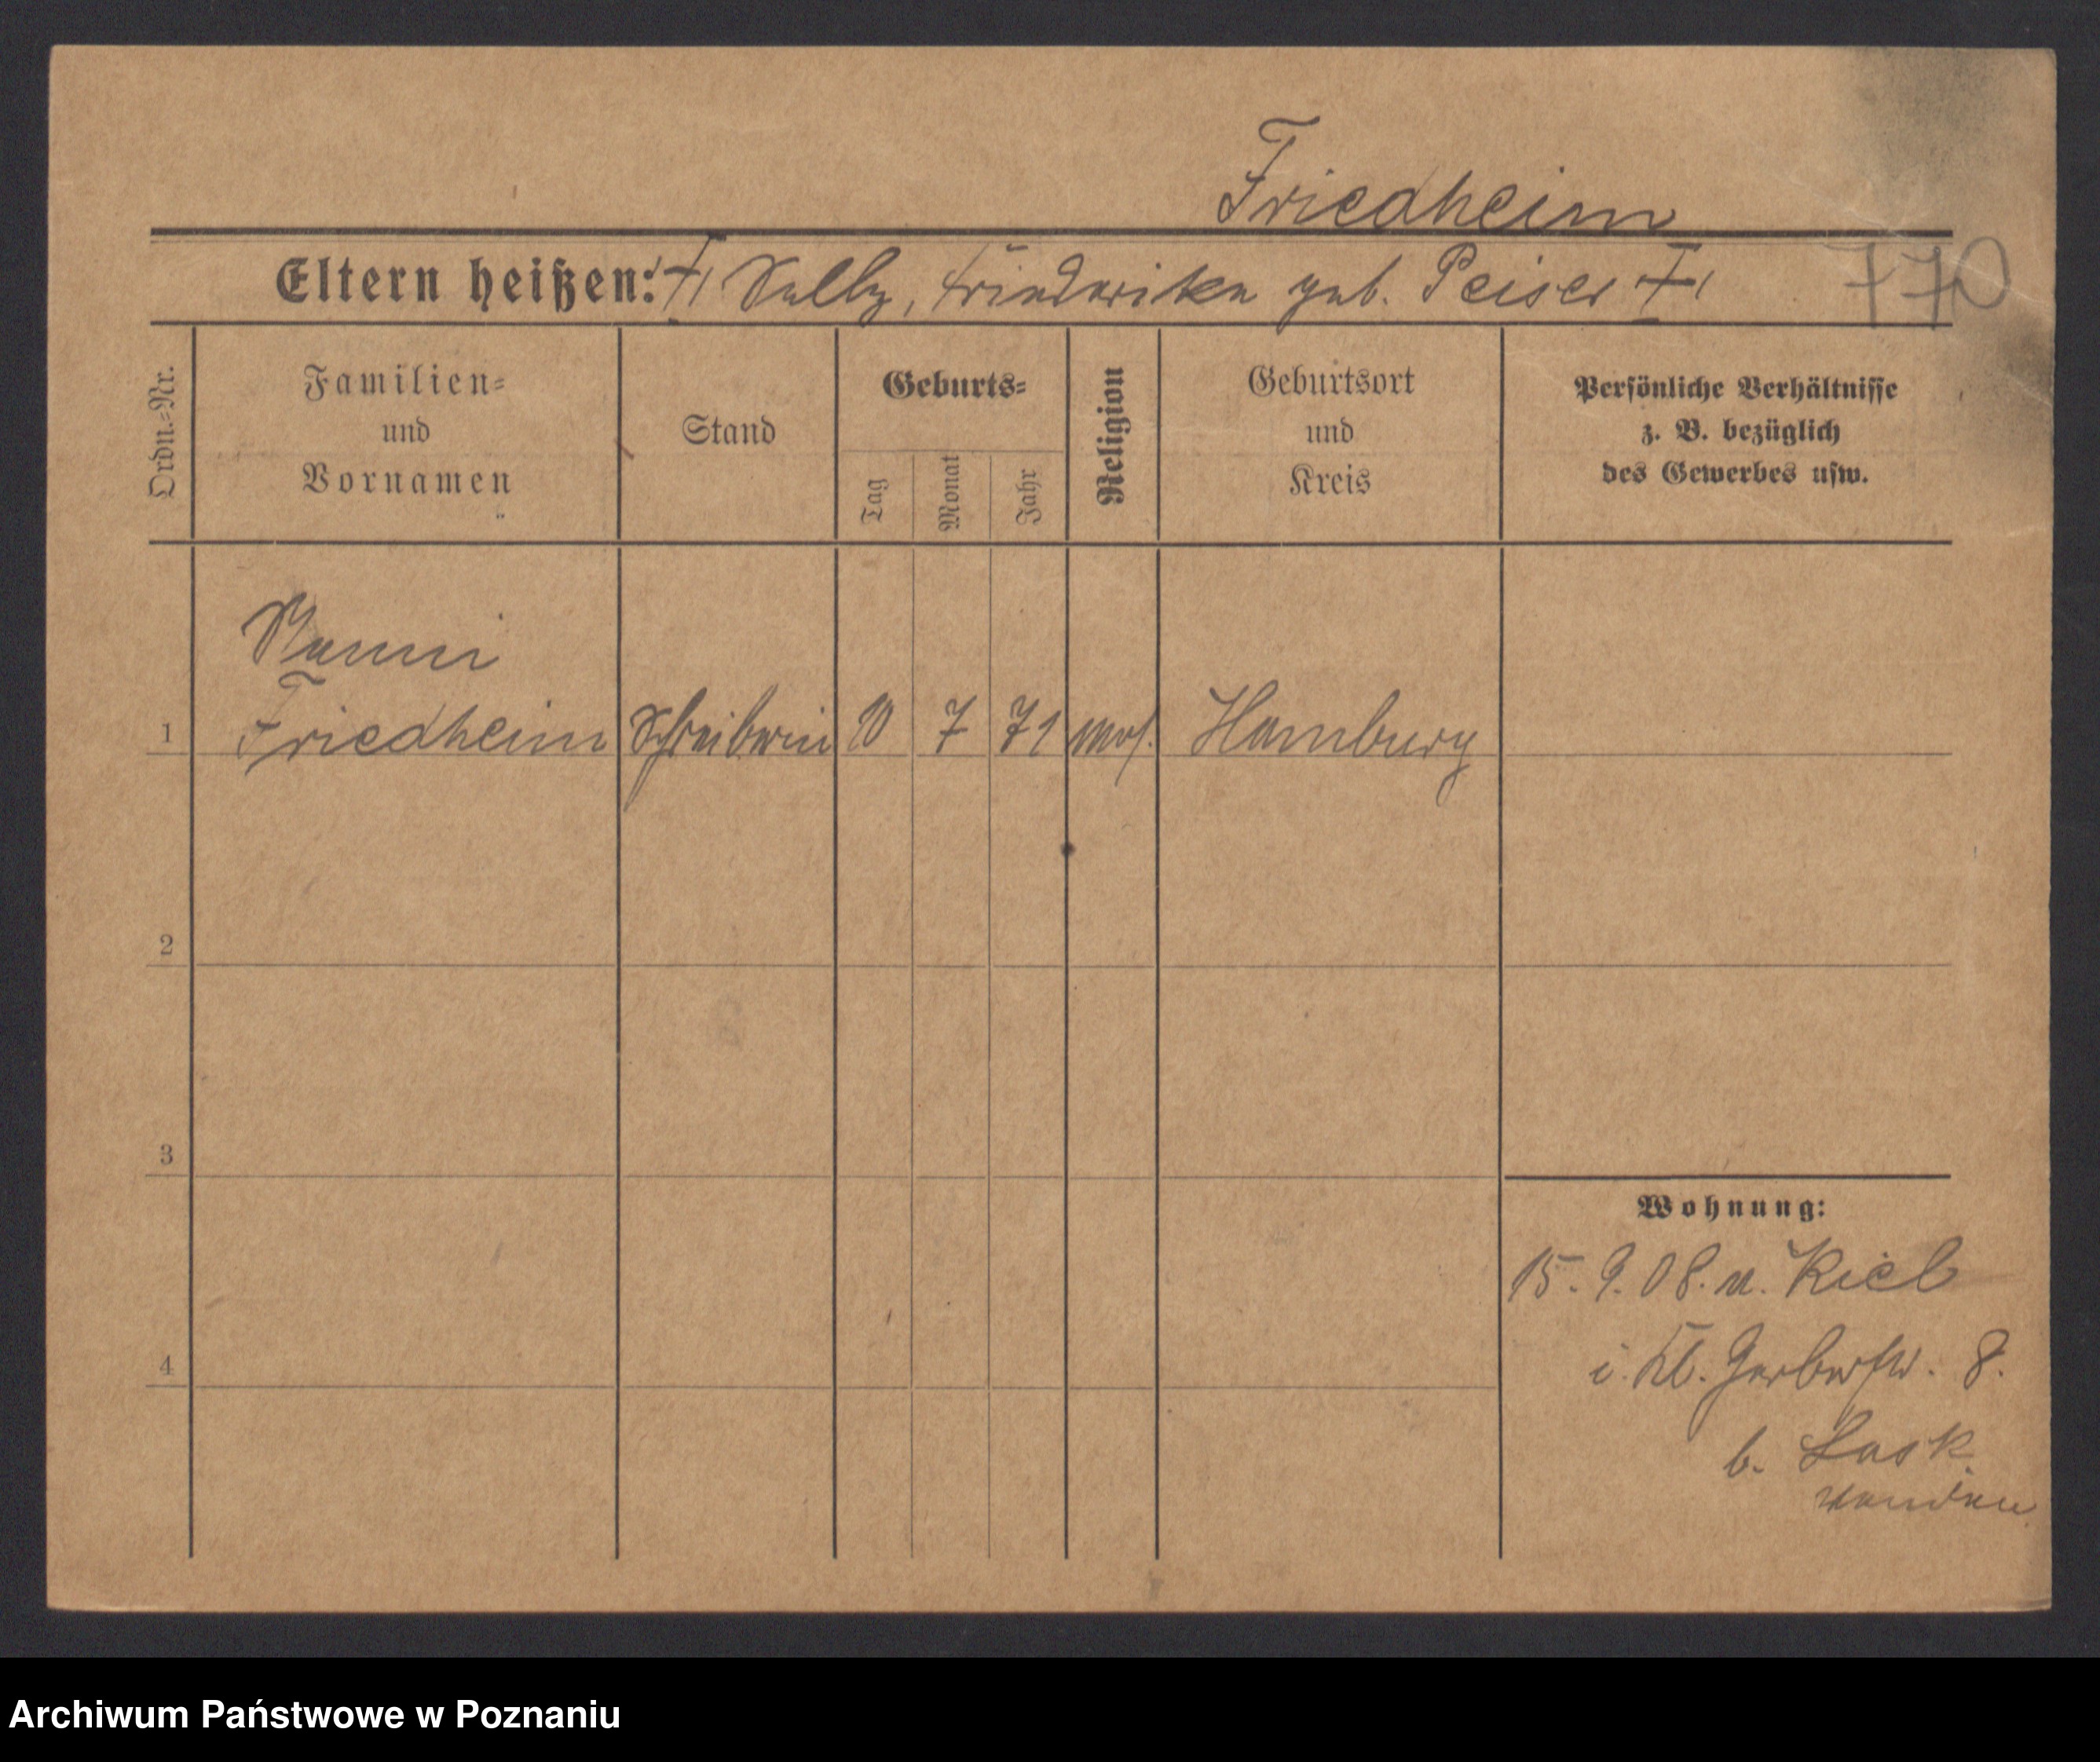 Friedheim
Eltern heißen: Sally, Friederike geb. Peiser
770
Ordn.-Nr.
Familien- und Vornamen
Stand
Geburts-
Tag
Monat
Jahr
Religion
Geburtsort und Kreis
Persönliche Verhältnisse z. B. bezüglich des Gewerbes usw.
Nanni
1 Friedheim Schreiberin 10 7 71 mos. Hamburg
2
3
Wohnung:
15. 9. 08. v. Kiel
4
i. Kl. Gerberstr. 8.
b. Lask
Archiwum Państwowe w Poznaniu